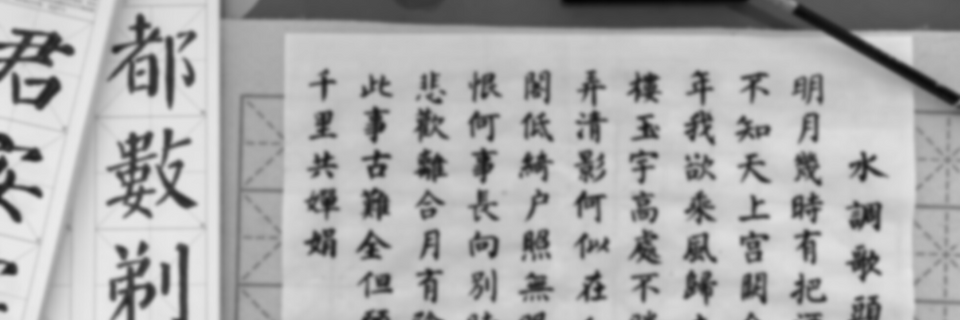 水調歌頭
明月幾時有把
不知天上宫闕
年我欲乘風歸
樓玉宇高處不
弄清影何似在
閣低綺户照無
恨何事長向別
悲歡離合月有
此事古難全但
千里共嬋娟
都數剃
君安